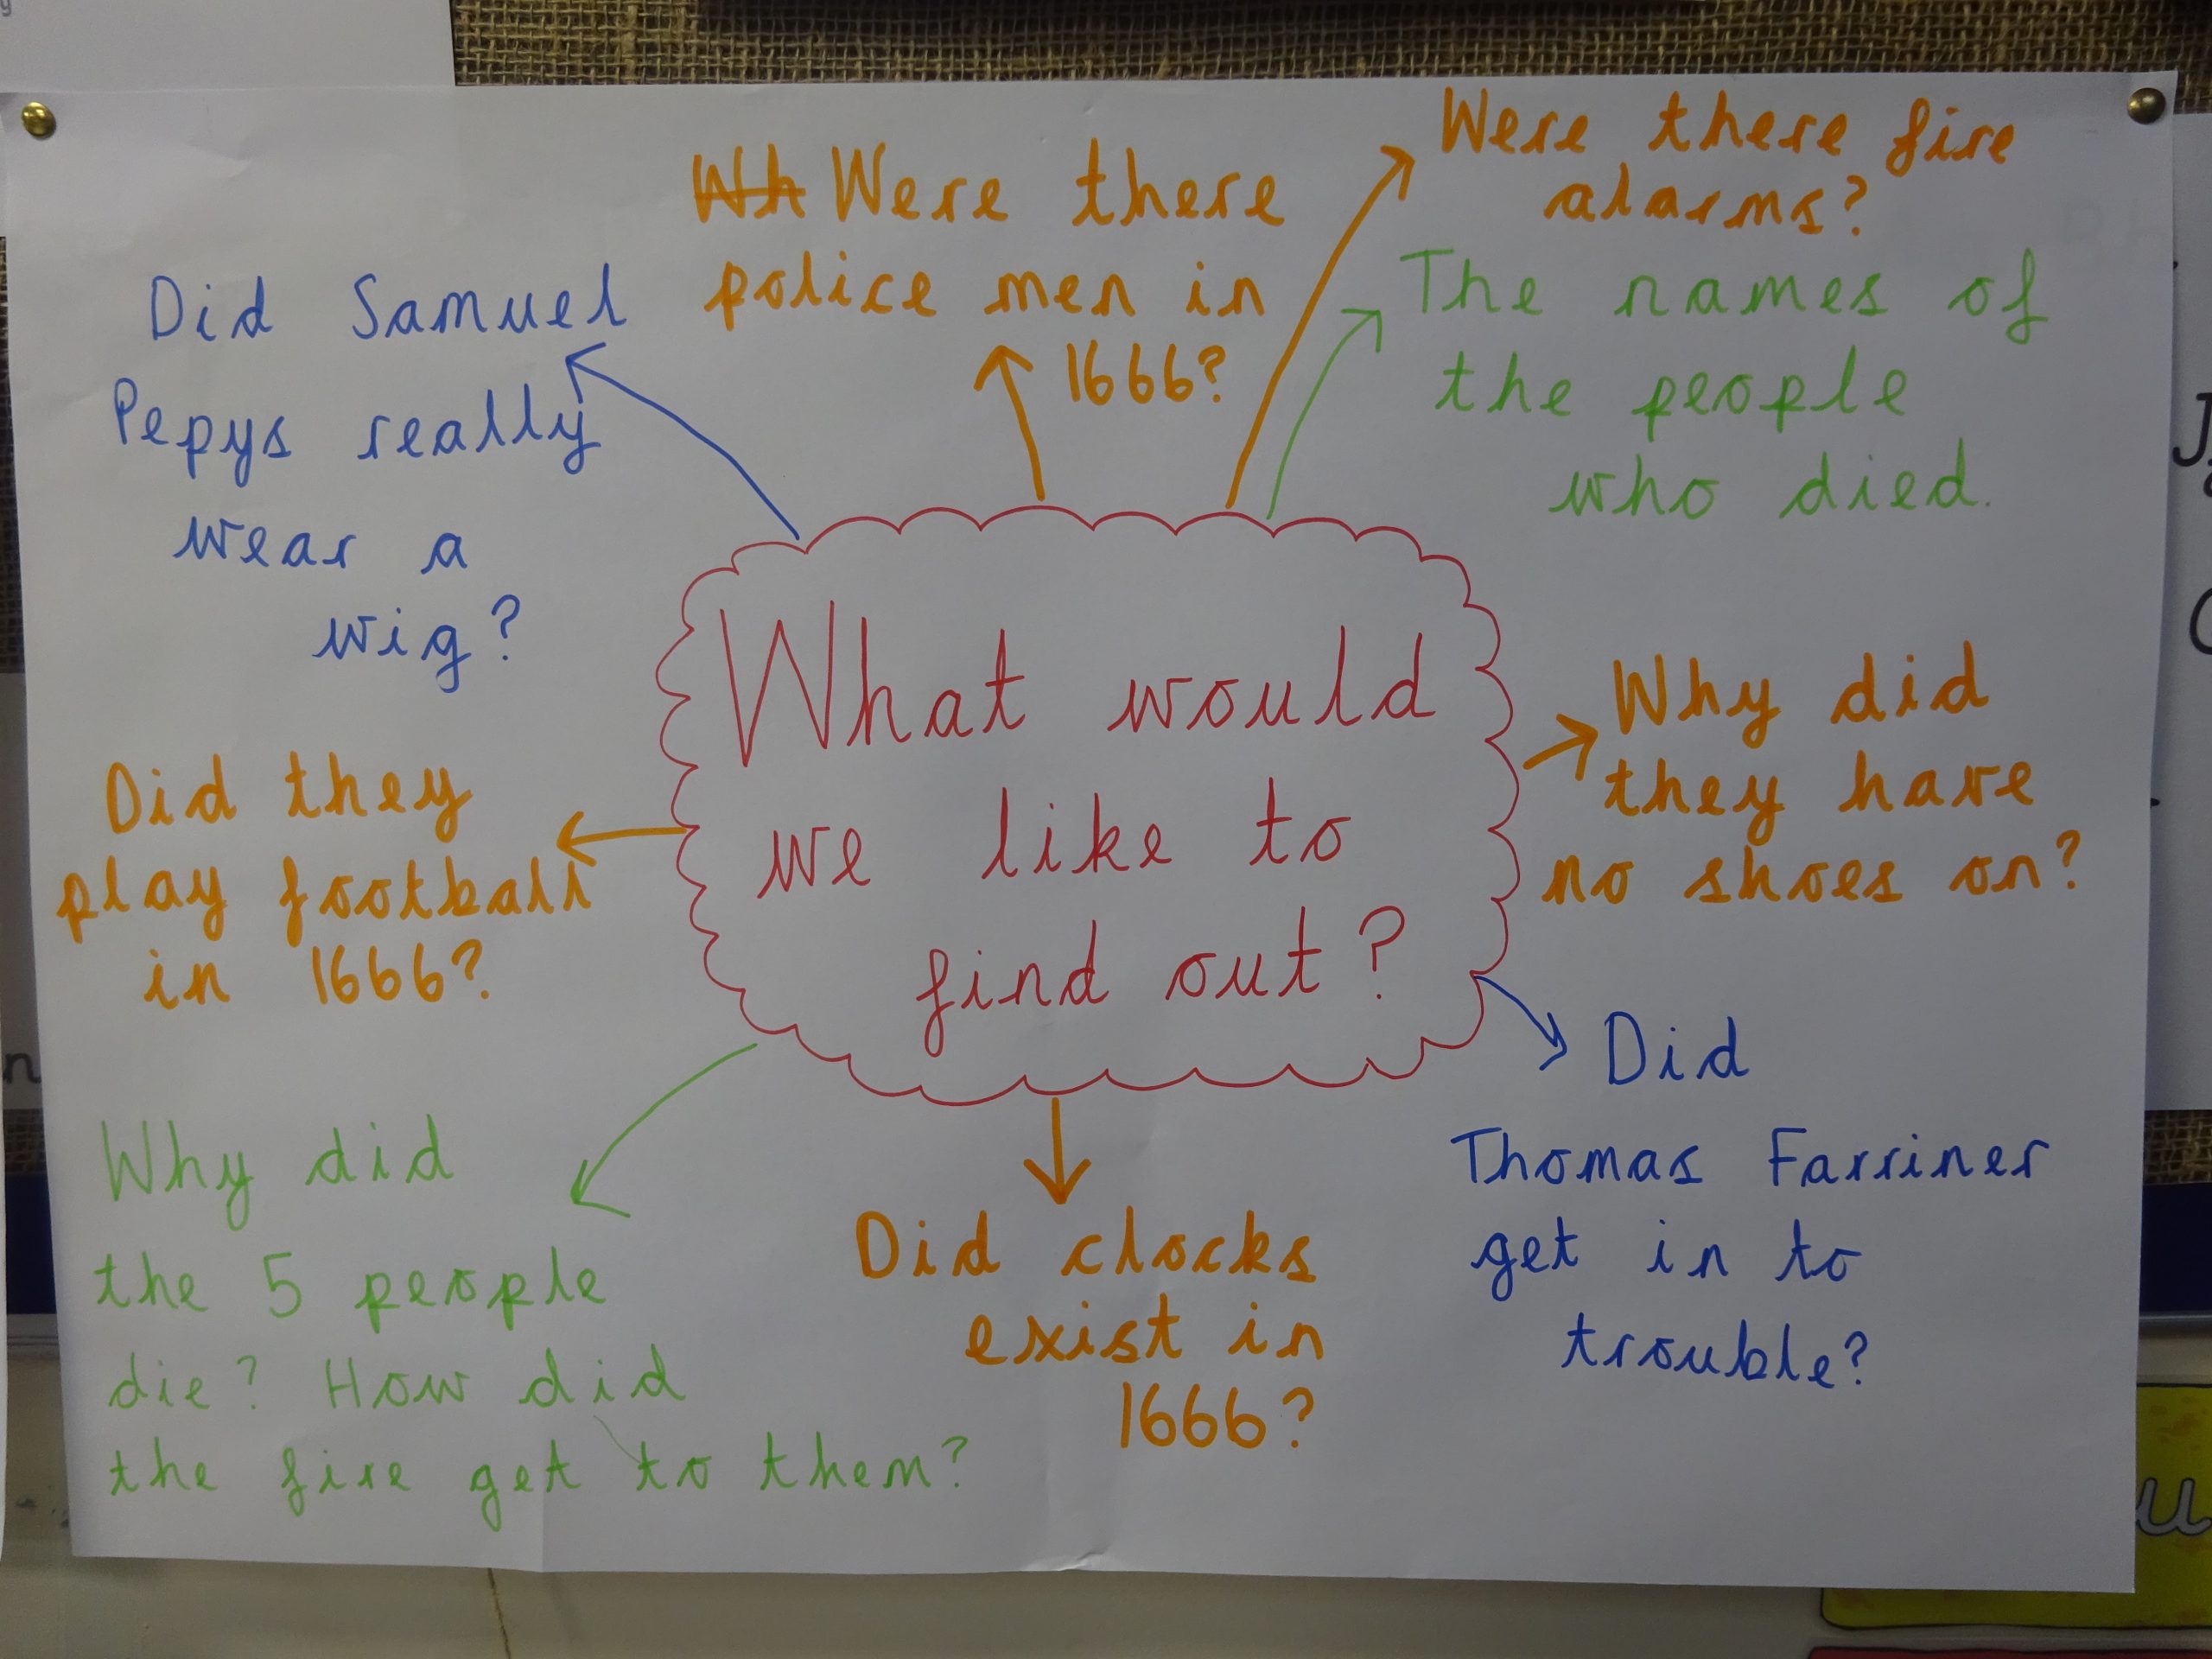 What would
we like to
find out?
Did Samuel
Pepys really
wear a
wig?
Wh Were there
police men in
1666?
Were there fire
alarms?
The names of
the people
who died.
Why did
they have
no shoes on?
Did
Thomas Farriner
get in to
trouble?
Did clocks
exist in
1666?
Why did
the 5 people
die? How did
the fire get to them?
Did they
play football
in 1666?